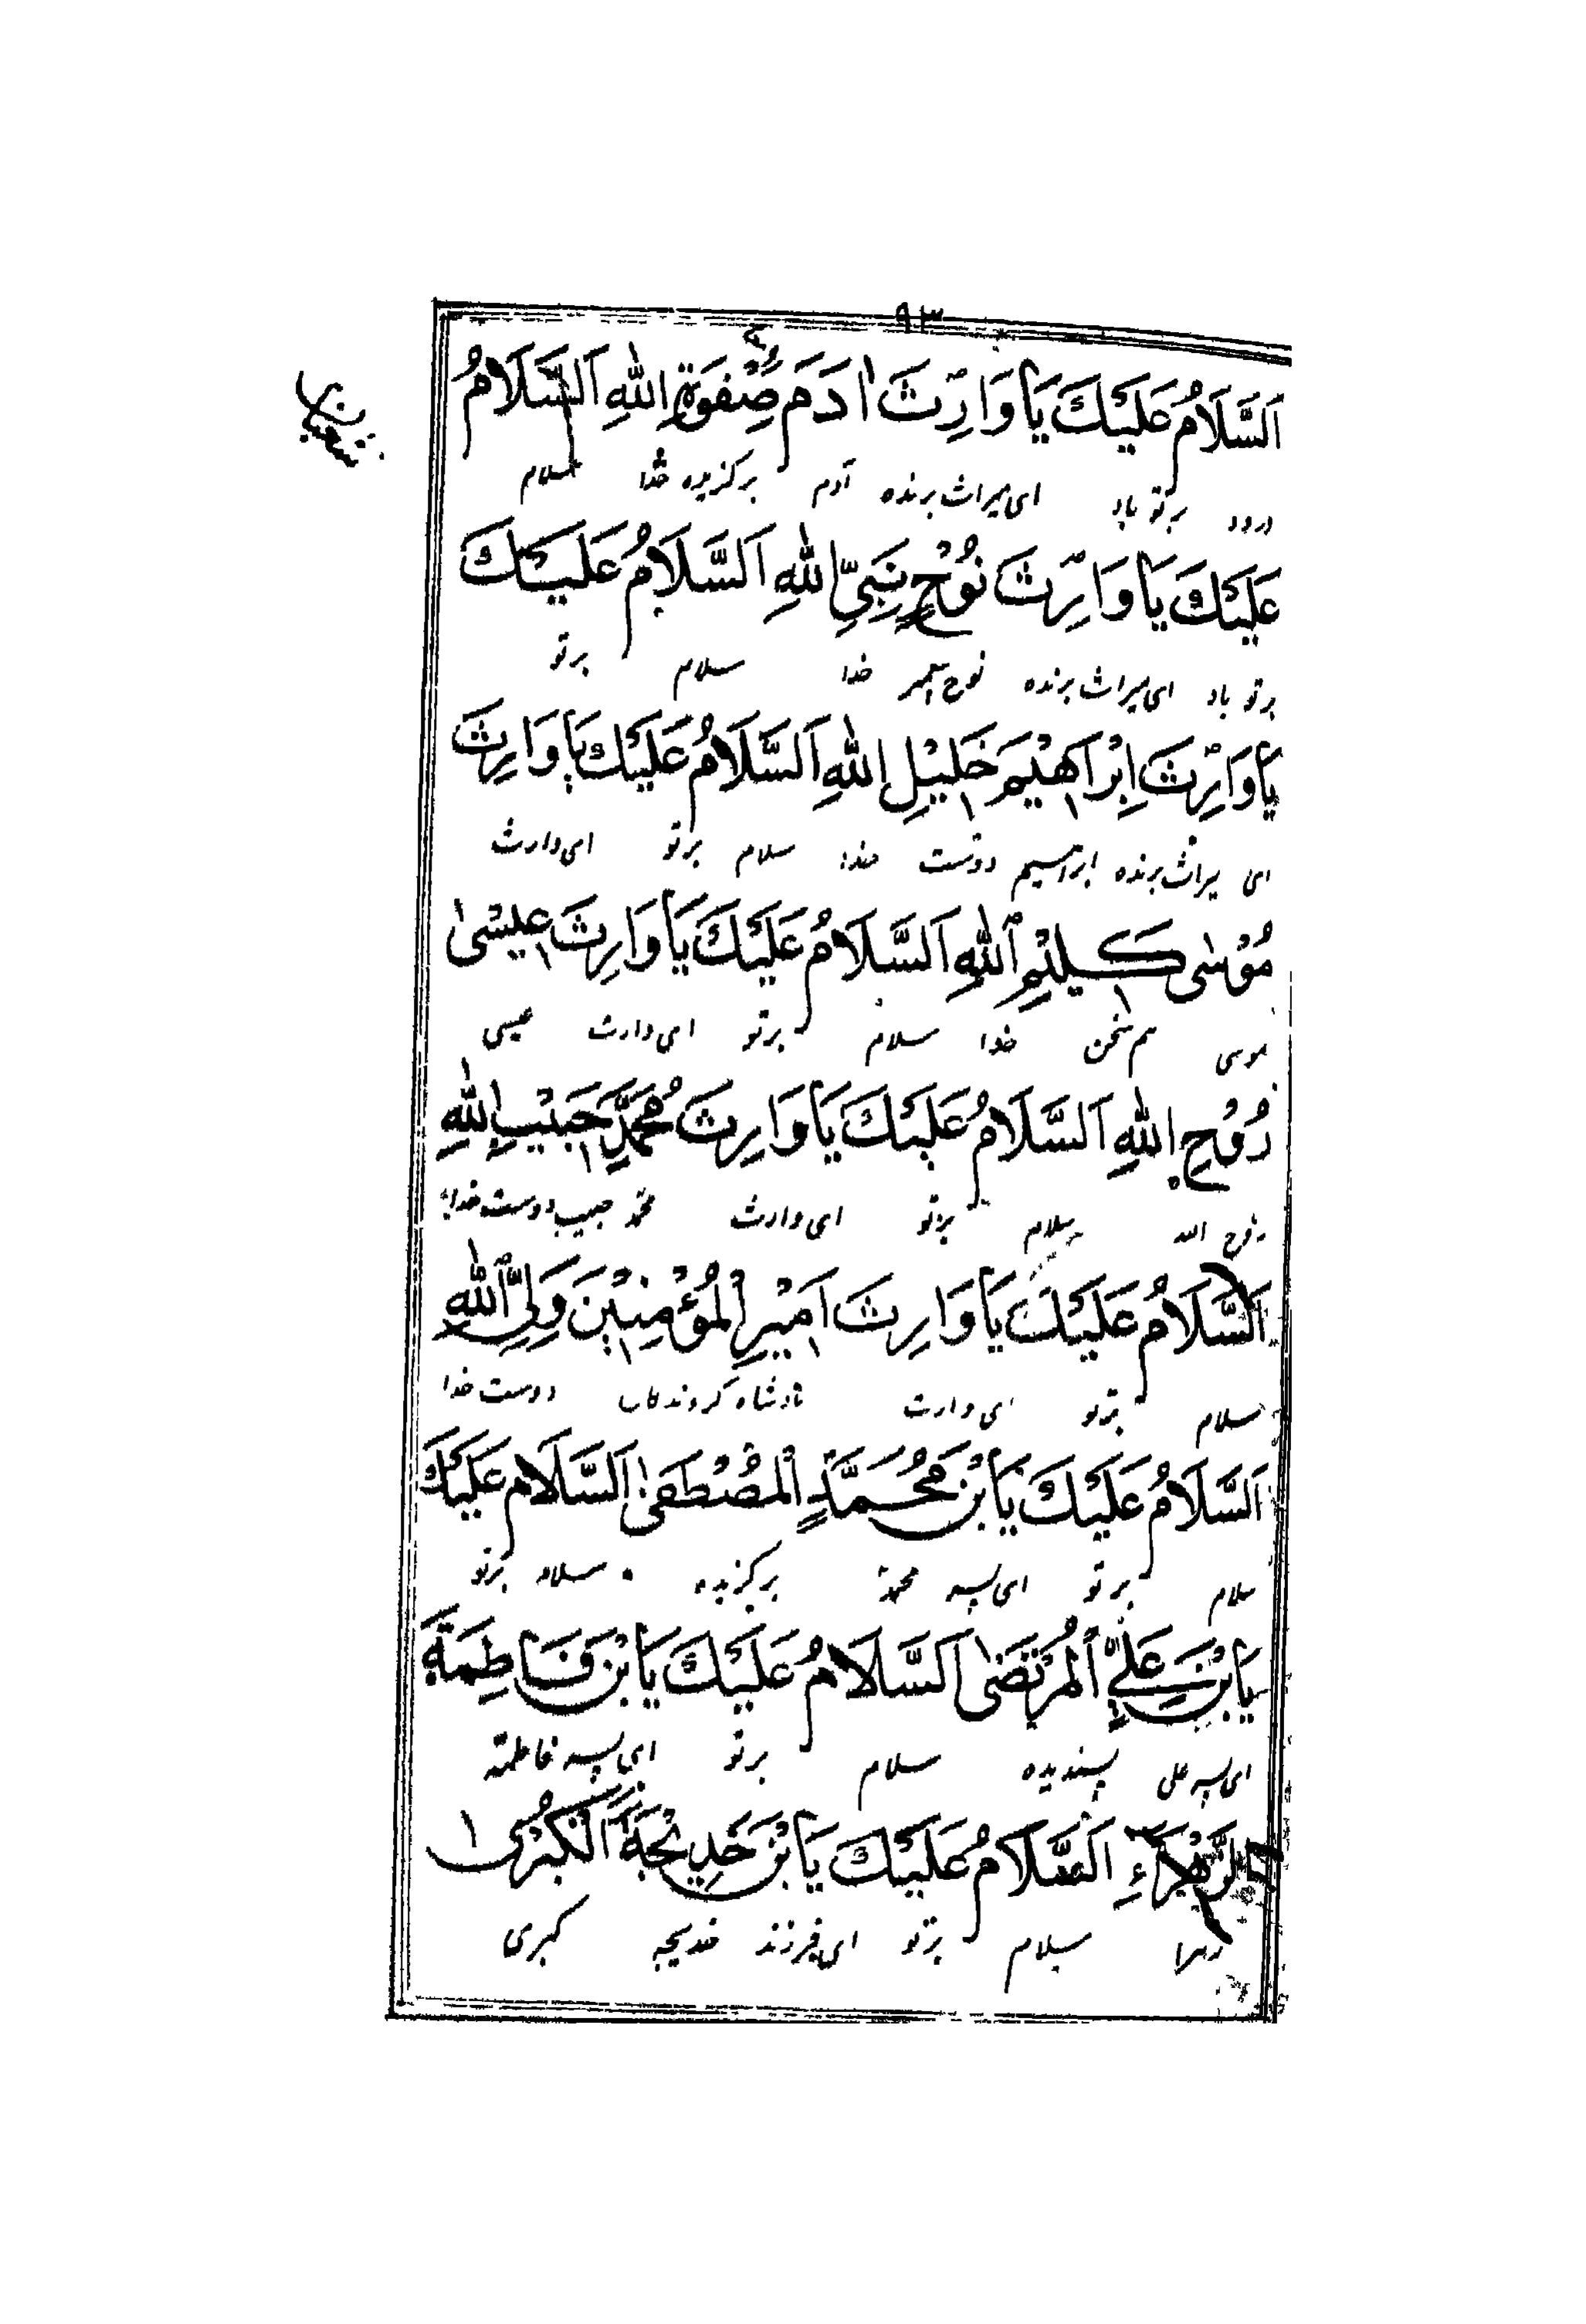 ۹۳
اَلسَّلَامُ عَلَیْكَ یَا وَارِثَ اٰدَمَ صِفْوَةِ اللهِ اَلسَّلَامُ
درود برتو باد ای میراث برنده آدم برکزیده خدا سلام
عَلَیْكَ یَا وَارِثَ نُوْحٍ نَبِیِّ اللهِ اَلسَّلَامُ عَلَیْكَ
برتو باد ای میراث برنده نوح پیغمبر خدا سلام برتو
یَا وَارِثَ اِبْرَاهِیْمَ خَلِیْلِ اللهِ اَلسَّلَامُ عَلَیْكَ یَا وَارِثَ
ای میراث برنده ابراهیم دوست خدا سلام برتو ای وارث
مُوْسٰی کَلِیْمِ اللهِ اَلسَّلَامُ عَلَیْكَ یَا وَارِثَ عِیْسٰی
موسی هم سخن خدا سلام برتو ای وارث عیسی
رُوْحِ اللهِ اَلسَّلَامُ عَلَیْكَ یَا وَارِثَ مُحَمَّدٍ حَبِیْبِ اللهِ
روح الله سلام برتو ای وارث محمد حبیب دوست خدا
اَلسَّلَامُ عَلَیْكَ یَا وَارِثَ اَمِیْرِ الْمُؤْمِنِیْنَ وَلِیِّ اللهِ
سلام برتو ای وارث دوست خدا
اَلسَّلَامُ عَلَیْكَ یَا بْنَ مُحَمَّدٍ الْمُصْطَفٰی اَلسَّلَامُ عَلَیْكَ
سلام برتو ای پسر محمد برکزیده سلام برتو
یَا بْنَ عَلِیٍّ الْمُرْتَضٰی اَلسَّلَامُ عَلَیْكَ یَا بْنَ فَاطِمَةَ
ای پسر علی پسندیده سلام برتو ای پسر فاطمه
الزَّهْرَاءِ اَلسَّلَامُ عَلَیْكَ یَا بْنَ خَدِیْجَةَ الْکُبْرٰی
زهرا سلام برتو ای فرزند خدیجه کبری